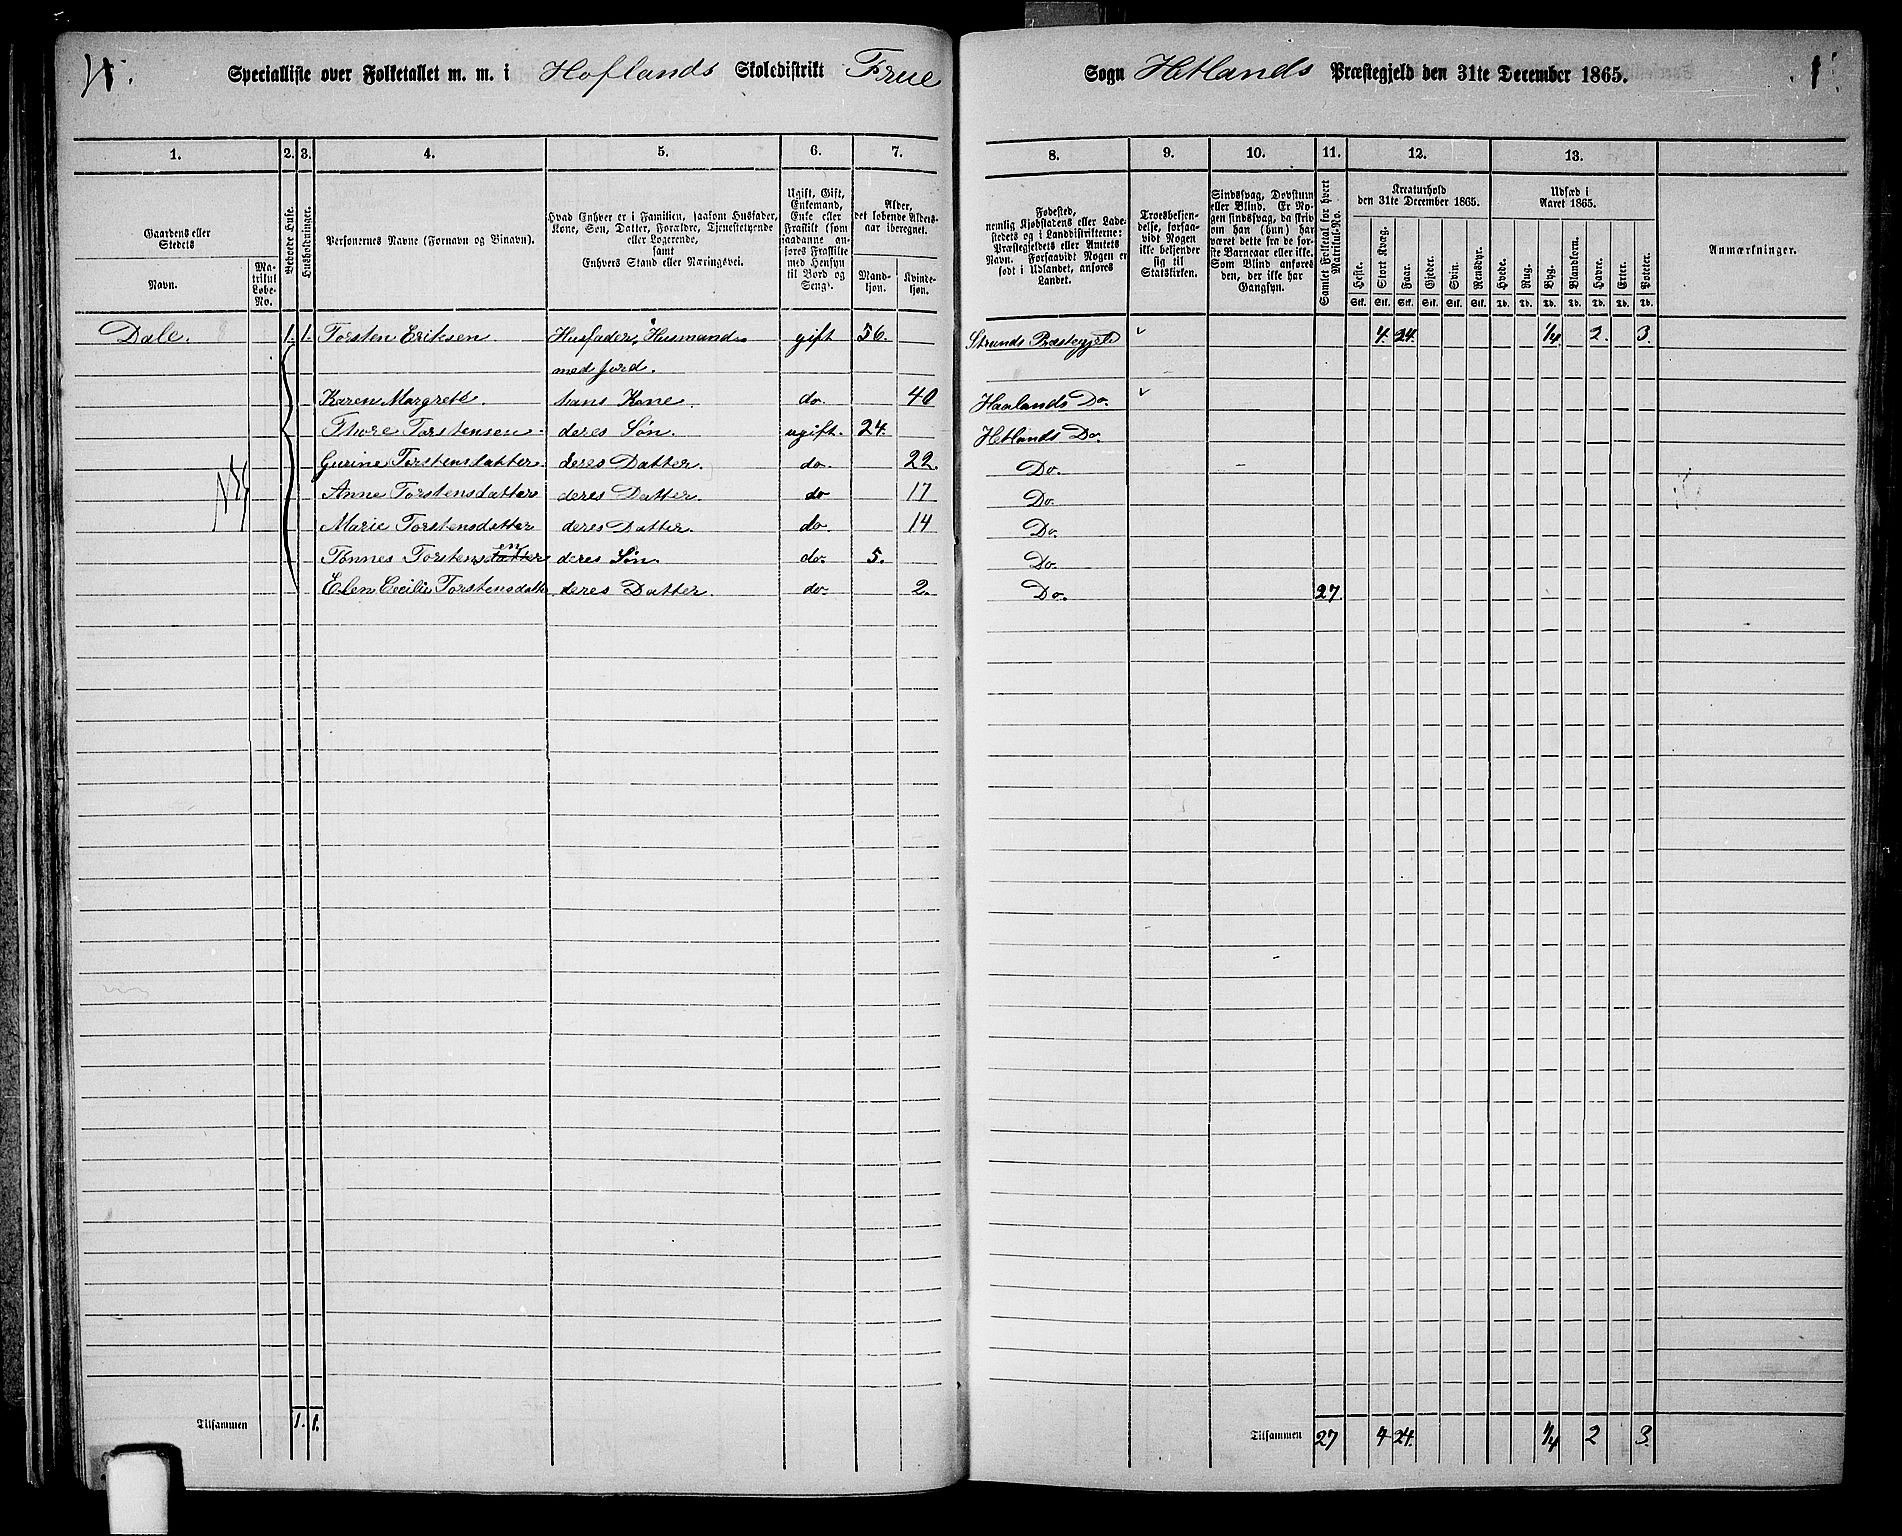 Specialliste over Folketallet m. m. i Hoflands Skoledistrikt Frue Sogn Hetlands Præstegjeld den 31te December 1865.
1. 2. 3. 4. 5. 6. 7. 8. 9. 10. 11. 12. 13.
Gaardens eller Stedets
Navn.
Matrikul Løbe-No.
Beboede Huse.
Husholdninger.
Personernes Navne (Fornavn og Binavn).
Hvad Enhver er i Familien, saasom Husfader,
Kone, Søn, Datter, Forældre, Tjenestetyende
eller Logerende,
samt
Enhvers Stand eller Næringsvei.
Ugift, Gift,
Enkemand,
Enke eller
Fraskilt (som
saadanne an-
føres Fraskilte
med Hensyn
til Bord og
Seng).
Alder,
det løbende Alders-
aar iberegnet.
Mand-
kjøn.
Kvinde-
kjøn.
Fødested,
nemlig Kjøbstadens eller Lade-
stedets og i Landdistrikterne:
Præstegjeldets eller Amtets
Navn. Forsaavidt Nogen er
født i Udlandet, anføres
Landet.
Troesbekjen-
delse, forsaa-
vidt Nogen
ikke bekjender
sig til
Statskirken.
Sindssvag, Døvstum
eller Blind. Er No-
gen sindssvag, da skriv
om han (hun) har
været dette fra de før-
ste Barneaar eller ikke.
Som Blind anføres
den, der ikke har
Gangsyn.
Samlet Folketal for hvert
Matrikul-No.
Kreaturhold
den 31te December 1865.
Heste. Stort Kvæg. Faar. Gjeder. Svin. Rensdyr.
Stk. Stk. Stk. Stk. Stk. Stk.
Udsæd i
Aaret 1865.
Hvede. Rug. Byg. Blandkorn. Havre. Erter. Poteter.
Td. Td. Td. Td. Td. Td. Td.
Anmærkninger.
Dale. 1. 1. Torsten Eriksen Husfader, Husmand gift 56. Strands Præstegjeld 4. 24. 1/4 2. 3.
med jord.
Karen Margrete. hans Kone. do. 40 Haalands Do.
Thore Torstensen deres Søn. ugift. 24. Hetlands Do.
Gurine Torstensdatter. deres Datter. do. 22. Do.
Anne Torstensdatter deres Datter. do 17 Do.
Marie Torstensdatter deres Datter. do. 14 Do.
Tønnes Torstensdatter en deres Søn. do. 5. Do.
Elen Cecilie Torstensdatt deres Datter. do. 2. Do. 27
Tilsammen 1. 1. Tilsammen 27 4 24. 1/4 2 3.